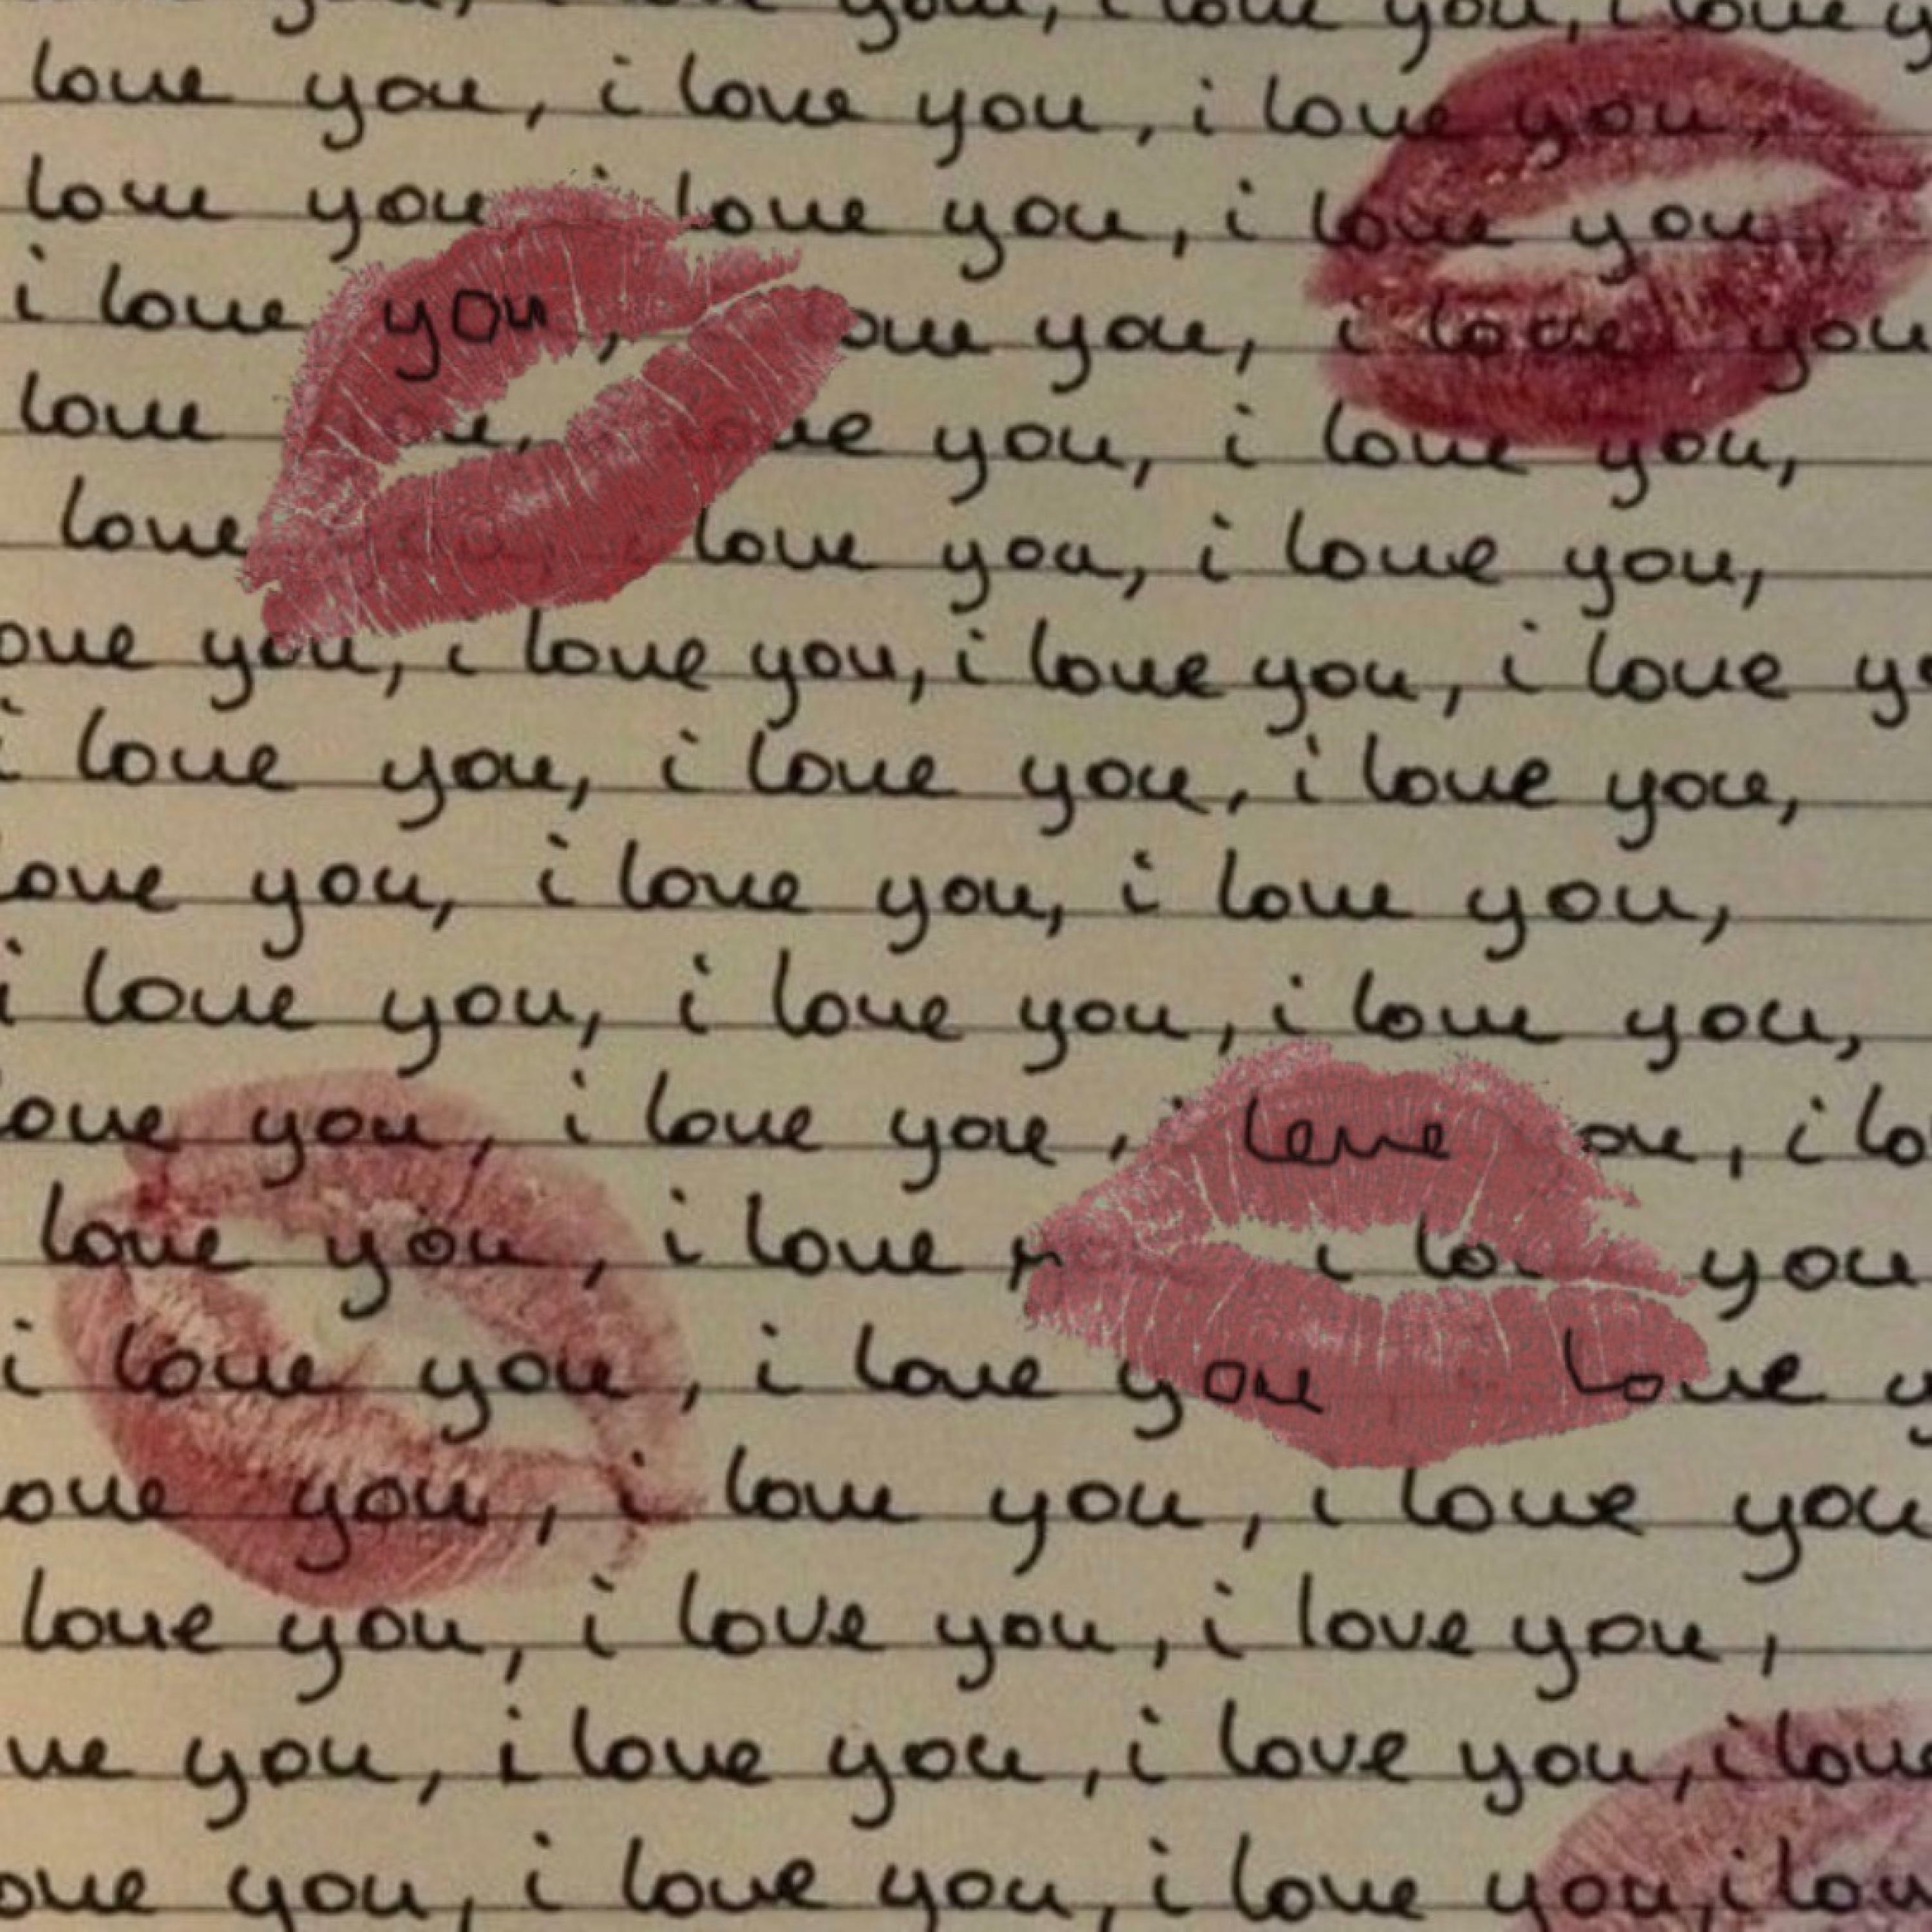 i love you, i love y
love you, i love you, i love you,
love you, i love you, i love you,
i love you, ove you, i love you
love you, love you, i love you,
love love you, i love you,
ove you, i love you, i love you, i love yo
i love you, i love you, i love you,
love you, i love you, i love you,
i love you, i love you, i love you,
love you, i love you, i love ou, i lo
love you, i love i lo you
i love you, i love you love y
ove you, i love you, i love you
love you, i love you, i love you,
ve you, i love you, i love you, i love
ove you, i love you, i love you, i lov